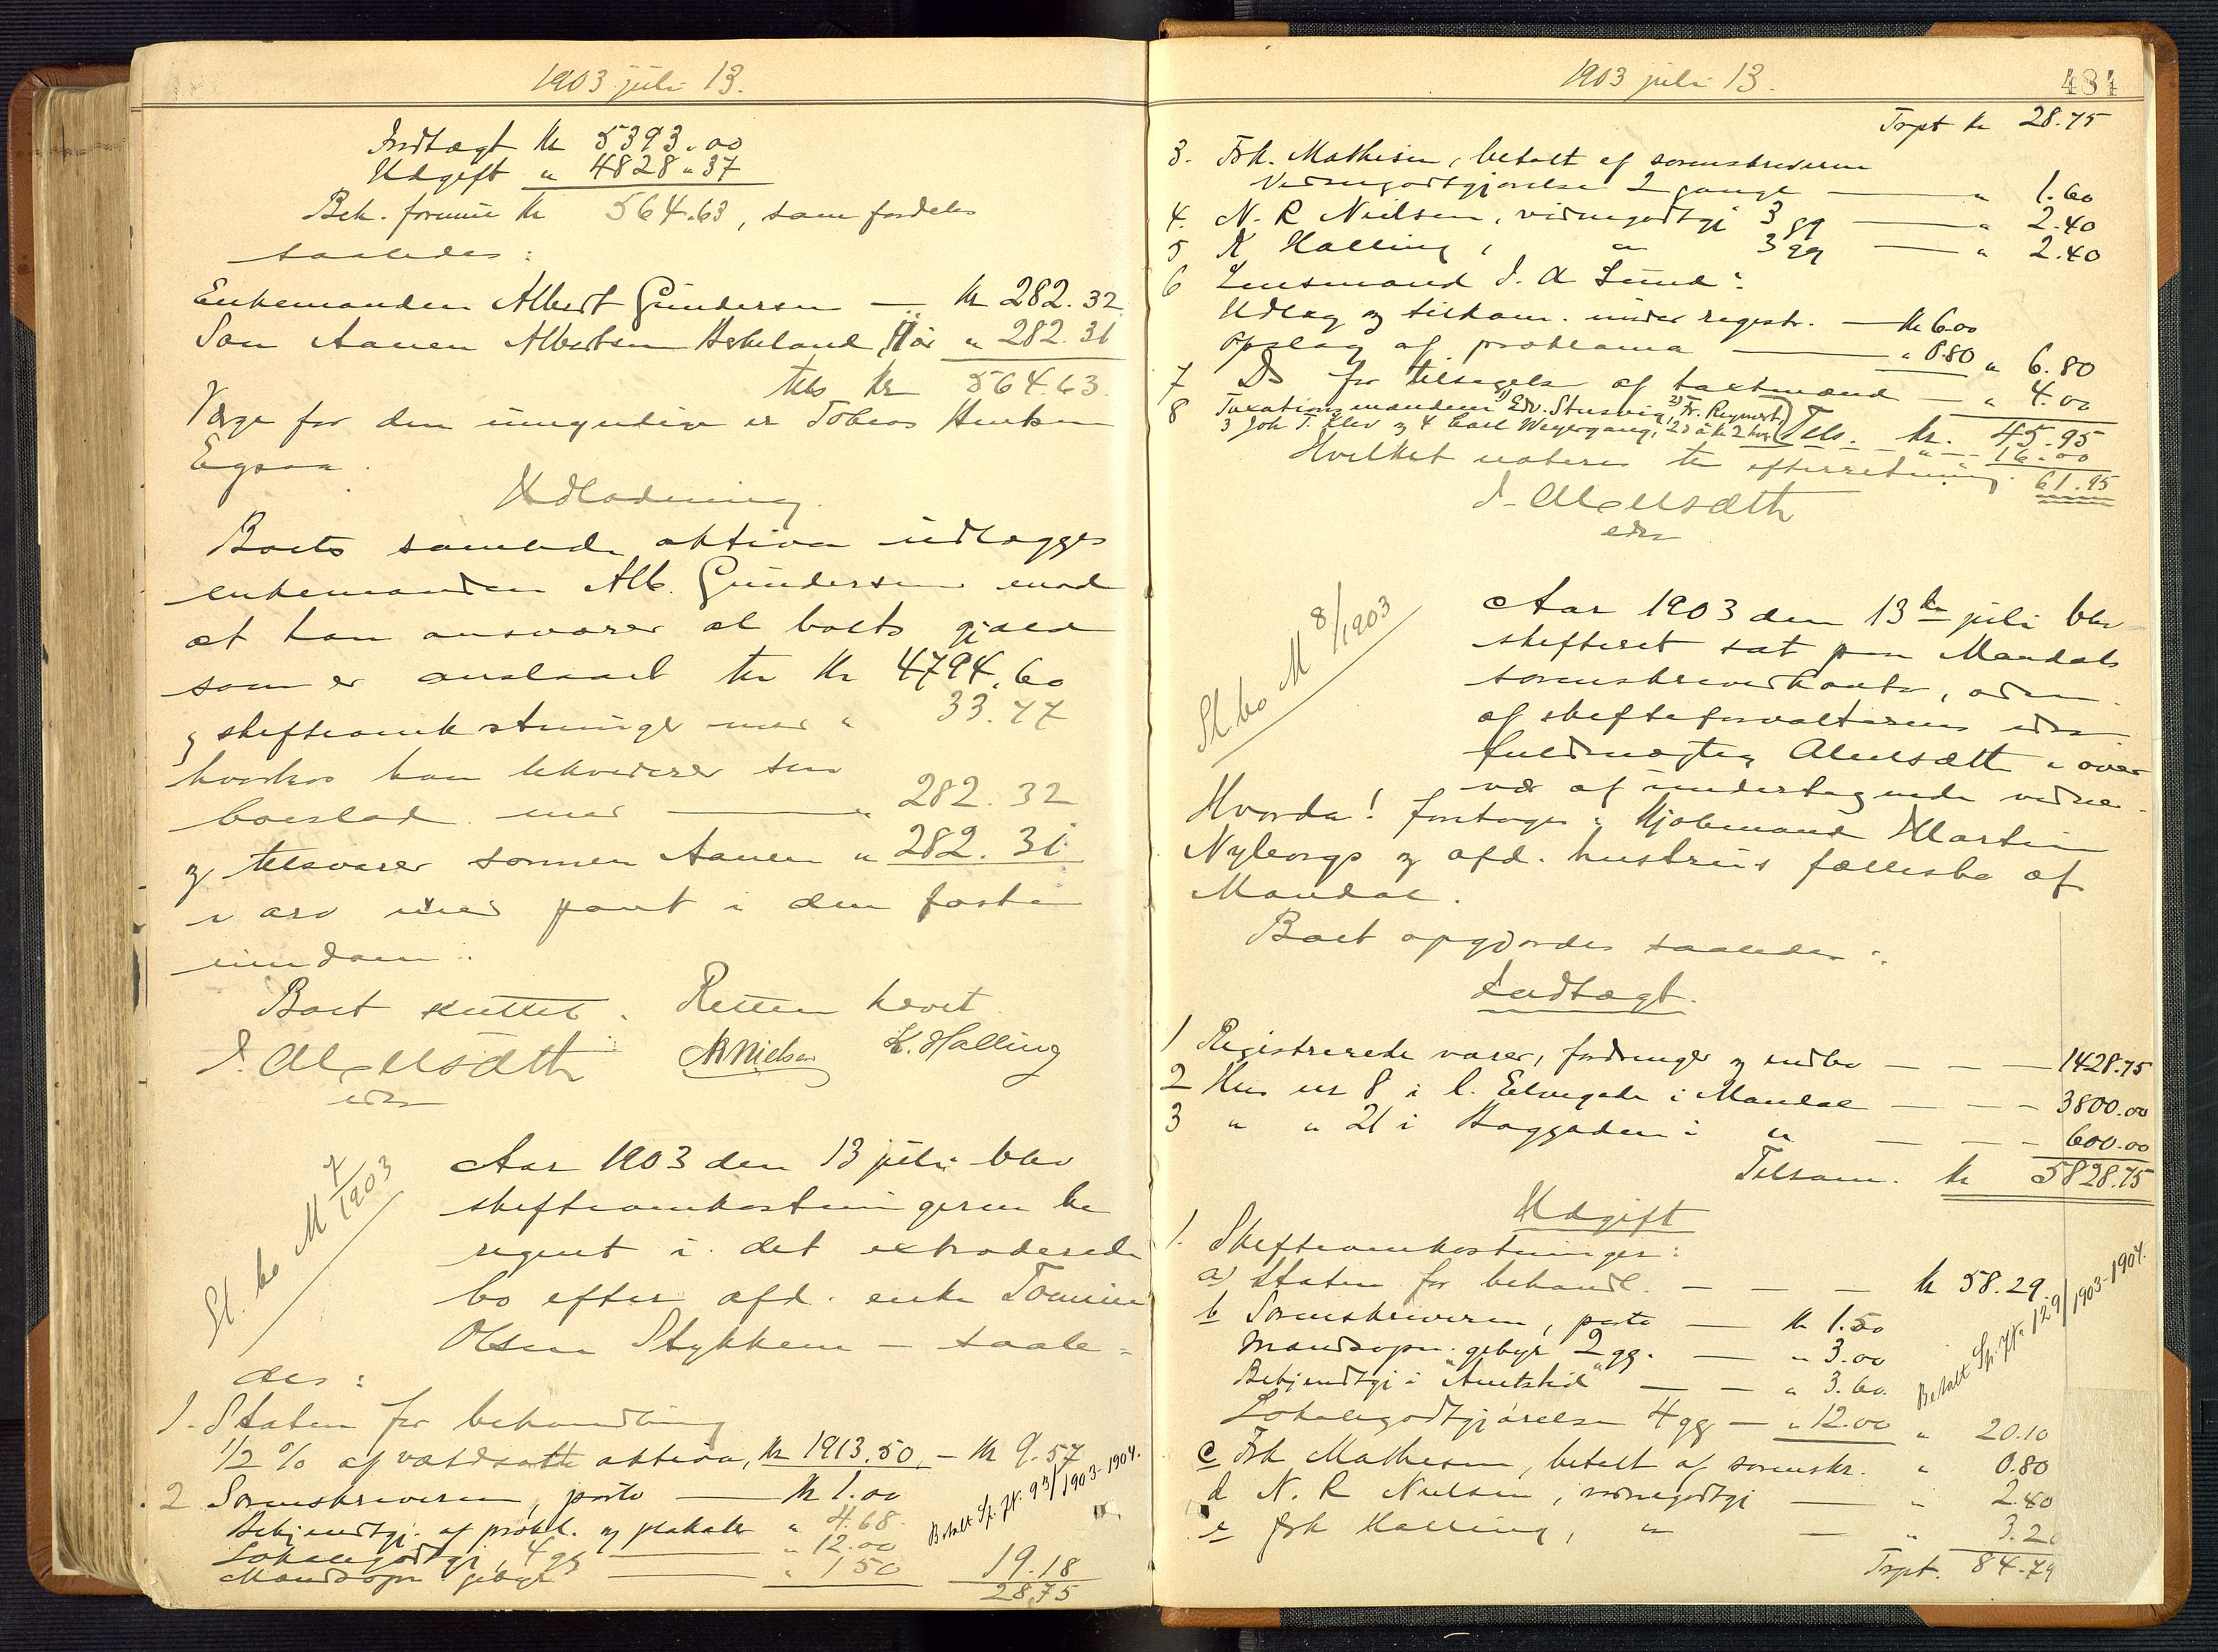 1903 juli 13.
Indtægt Kr 5393.00
Udgift " 4828 " 37
Beh. formue Kr 564.63, som fordeles
saaledes:
Enkemanden Albert Gundersen — Kr 282.32
Søn Aanen Albertsen Høkeland, " 282.31
tils Kr 564.63.
Værge for den umyndige er Tobias Henriksen
Egsaa.
Udlodning
Boets samlede aktiva udlægges
enkemanden Alb. Gundersen mod
at han ansvarer al boets gjæld
som er anslaaet til Kr 4794.60
og skifteomkostninger med " 33.77
hvorhos han likviderer sin
boeslod med — " 282.32
og tilsvarer sønnen Aanen " 282.31
i arv med pant i den faste
eiendom.
Boet sluttet. Retten hævet
I. Abelsæth NRNielsen K. Halling
edsv
St. bo M 7/1903
Aar 1903 den 13 juli blev
skifteomkostningerne be
regnet i det extraderede
bo efter afd. enke Tomine
Olsen Stykkene — saale=
des:
1. Staten for behandling
1/2 % af værdsatte aktiva, Kr 1913.50, — Kr 9.57
2 Sorenskriveren, porto — Kr 1.00
Bekjendtgj. af prokl. og plakater " 4.68
Lokalegodtgj, 4 gg — " 12.00
Mandsopn gebyr — " 1 50 19.18
28.75
Betalt Sp. Jr. 93/1903-1904.
1903 juli 13. 484
Trpt kr 28.75
3. Frk. Mathisen, betalt af sorenskriveren
Vidnegodtgjørelse 2 gange — " 1.60
4. N. R Nielsen, vidnegodtgj 3 gg — " 2.40
5 K Halling, " 3 gg — " 2.40
6 Lensmand I. A Lund:
Udlæg og tilkom. under registr. — Kr 6.00
Opslag af proklama — " 0.80 " 6.80
7 Do for tilsigelse af taxtmænd — " 4.00
8 Taxationsmændene 1) Edv. Stusvig, 2) Fr. Reymert
3 Joh T. Klev og 4 Carl Weyergang, 2 d à kr 2 hver Tils. Kr. 45.95
— " — 16.00
Hvilket noteres til efterretning. 61.95
I. Abelsæth
edsv
St. bo M 8/1903
Aar 1903 den 13de juli blev
skifteret sat paa Mandals
sorenskriverkontor, adm.
af skifteforvalterens edsv.
fuldmægtig Abelsæth i over
vær af undertegnede vidner.
Hvorda! foretoges: Kjøbmand Martin
Nyborgs og afd. hustrus fællesbo af
Mandal.
Boet opgjordes saaledes:
Indtægt.
1 Registrerede varer, fordringer og indbo — — — 1428.75
2 Hus nr 8 i l. Elvegade i Mandal — — — 3800.00
3 " " 21 i Haggaden i " — — — 600.00
Tilsam. kr 5828.75
Udgift
1. Skifteomkostninger:
a) Staten for behandl. — — — kr 58.29.
b Sorenskriveren, porto — Kr 1.50
Mandsopn. gebyr 2 gg. — " 3.00
Bekjendtgj i "Amtstid" — — " 3.60.
Lokalegodtgjørelse 4 gg — " 12.00 " 20.10
c Frk Mathisen, betalt af sorenskr. " 0.80
d N. R Nielsen, vidnegodtgj — " 2.40
e Frk Halling, " — " 3.20
Trpt. 84.79
Betalt Sp. Jr. 129/1903-1904.